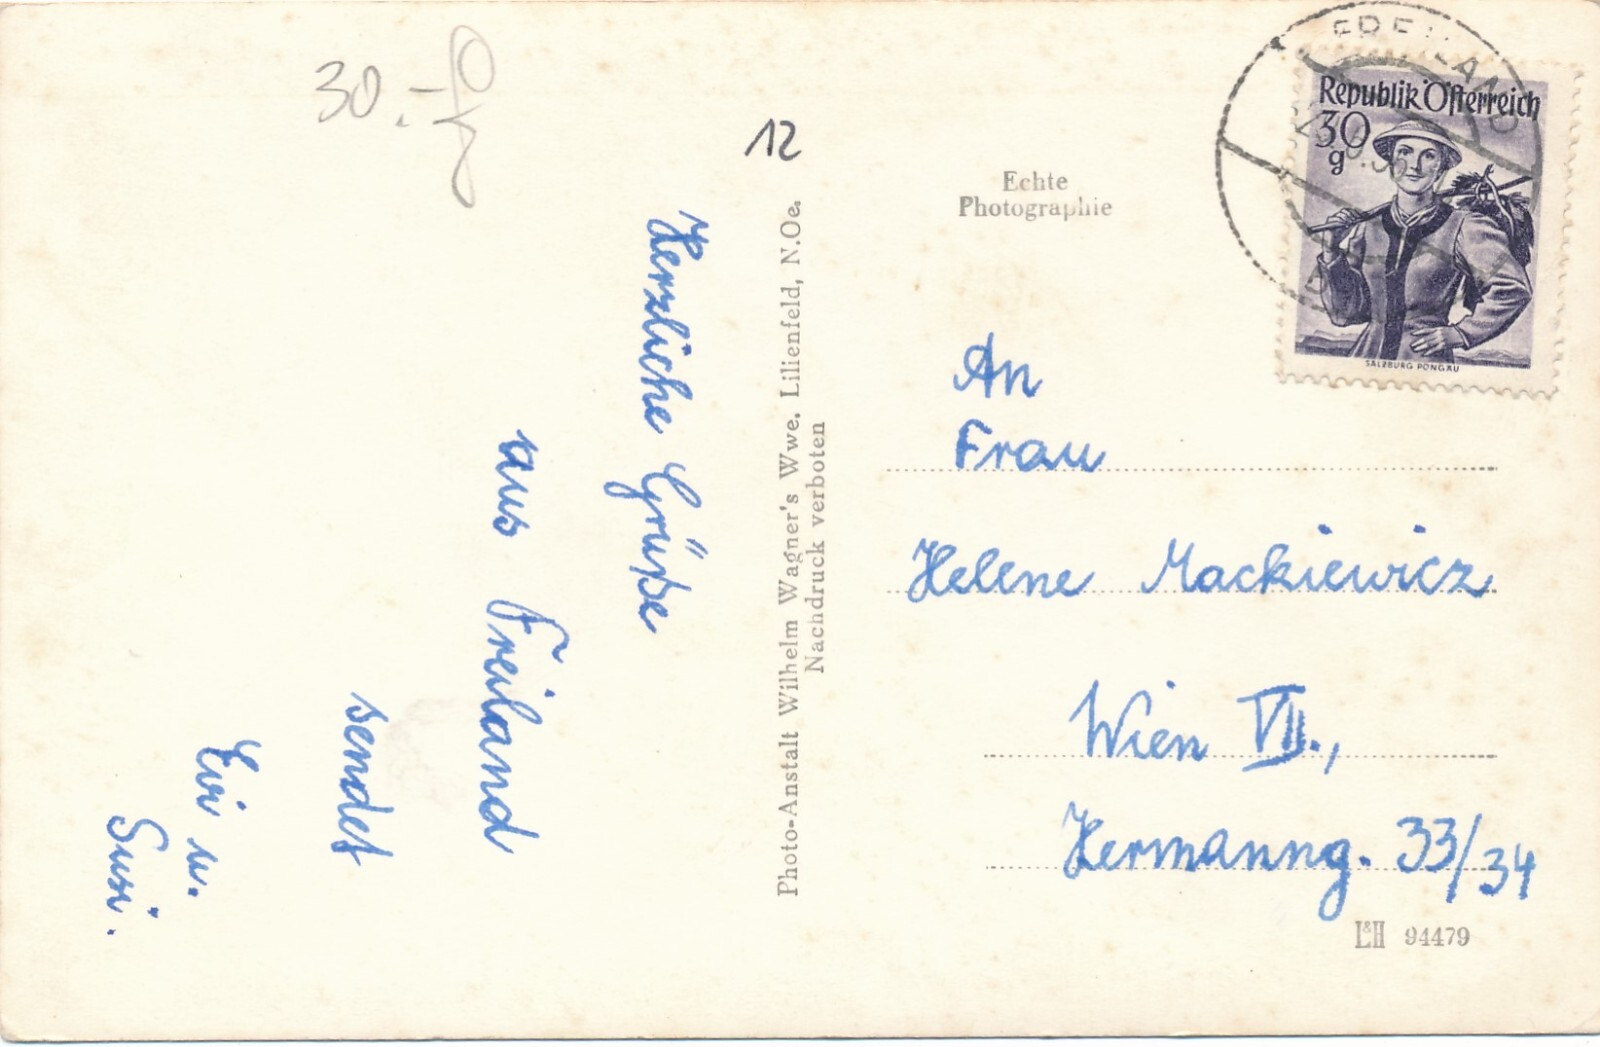 30.-
12
Herzliche Grüße
aus Freiland
sendet
Evi u.
Susi.
Photo-Anstalt Wilhelm Wagner's Wwe. Lilienfeld, N.Oe.
Nachdruck verboten
Echte
Photographie
FREILAND
Republik Österreich
30
g
SALZBURG PONGAU
An
Frau
Helene Mackiewicz
Wien VII.,
Hermanng. 33/34
L&H 94479